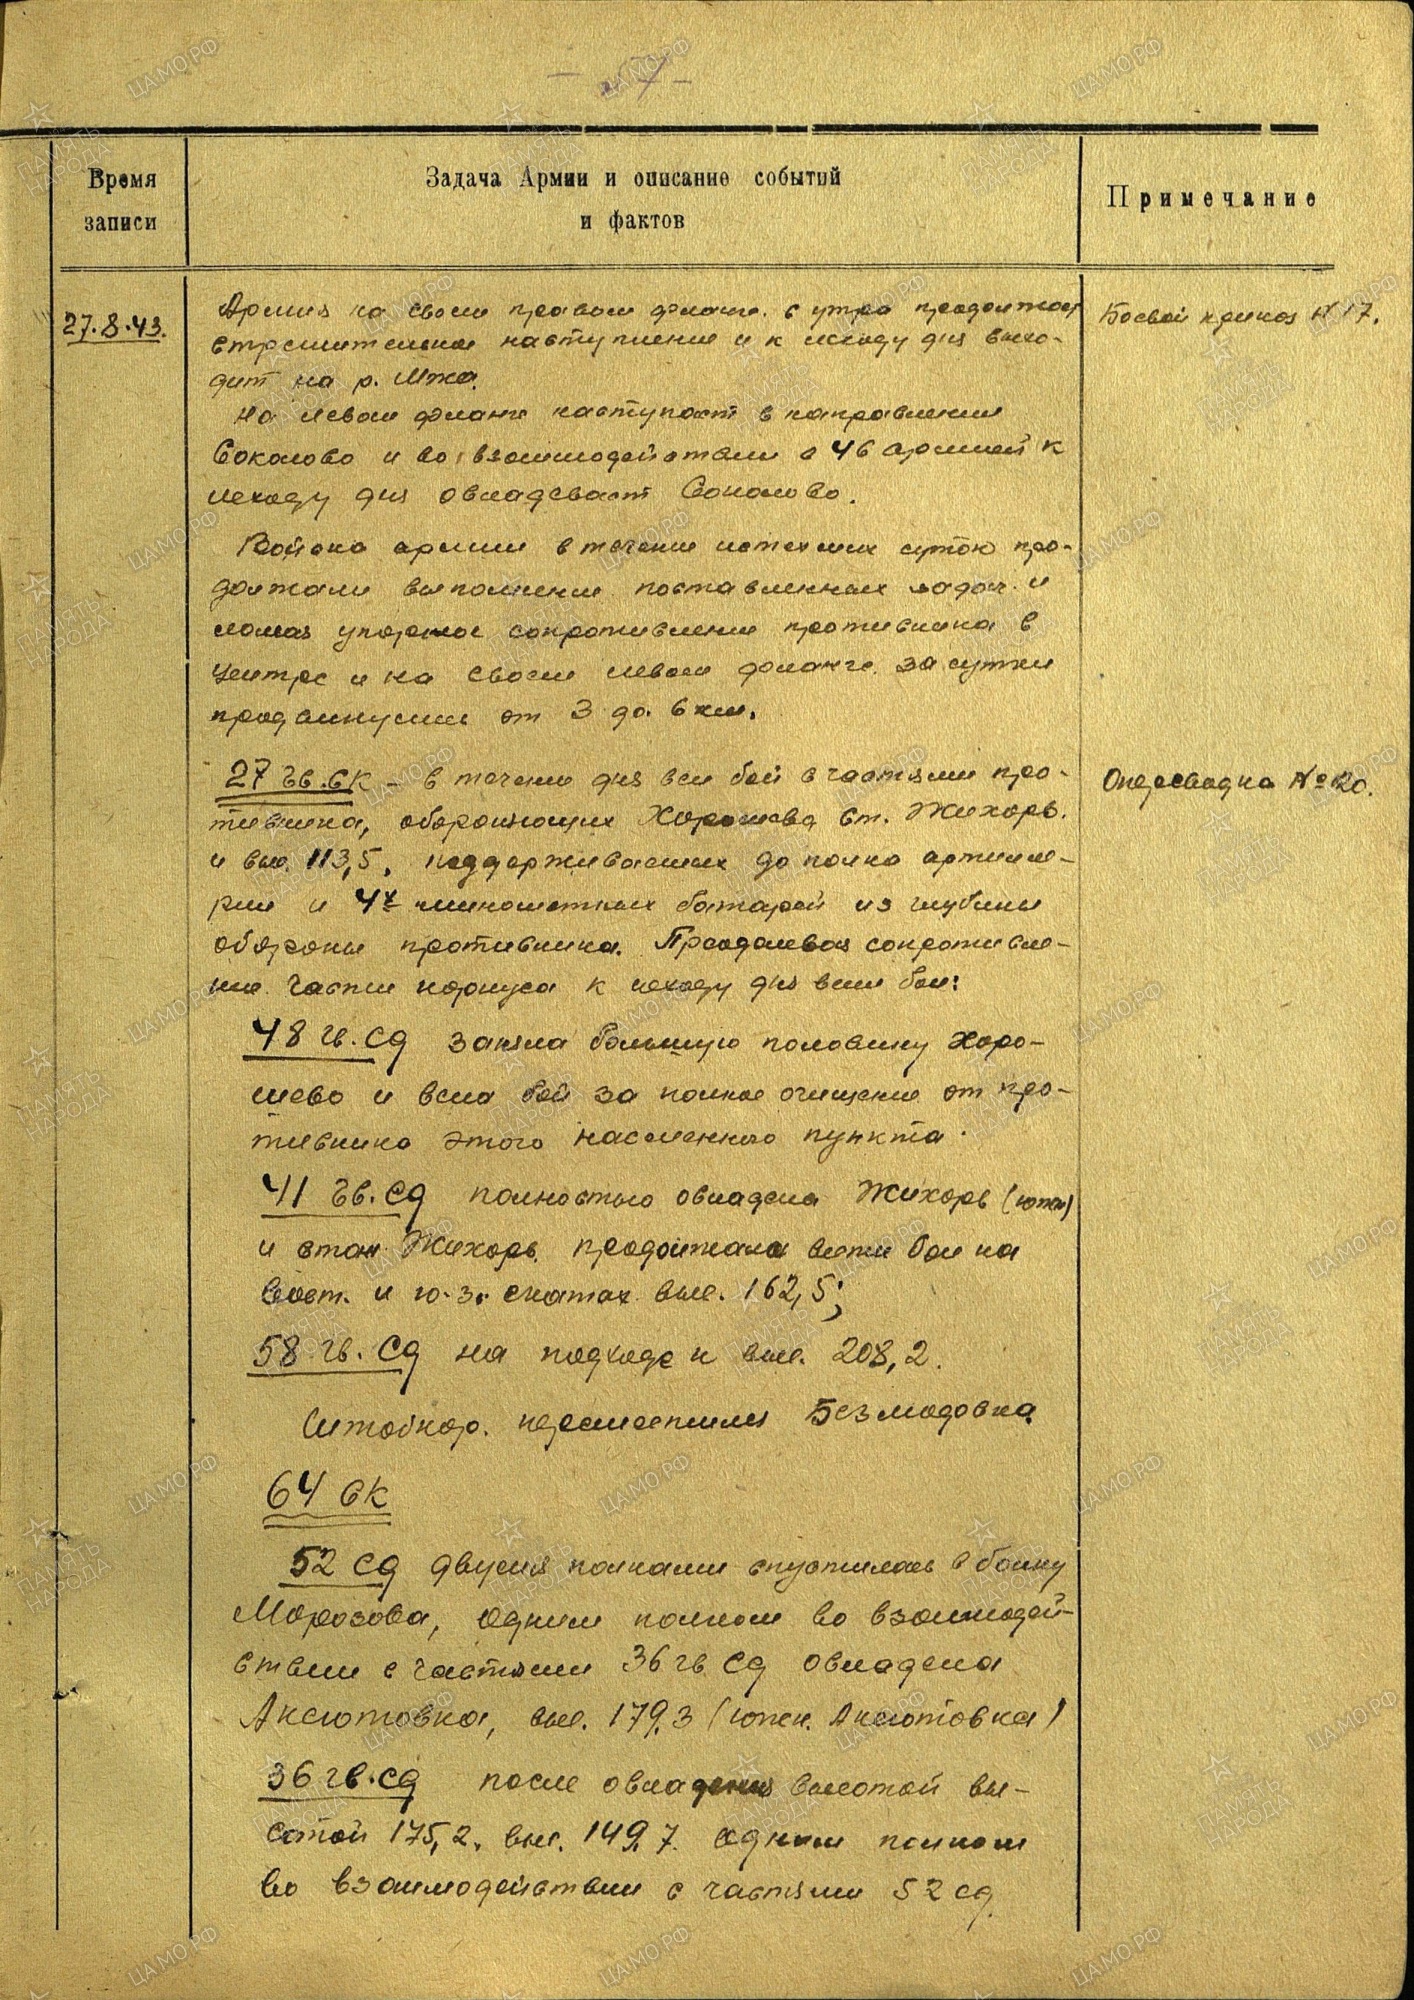 57
Время записи
Задача Армии и описание событий
и фактов
Примечание
27.8.43.
Армия на своем правом фланге с утра продолжает
стремительное наступление и к исходу дня выхо-
дит на р. Мжа.
На левом фланге наступает в направлении
Соколово и во взаимодействии с 46 армией к
исходу дня овладевает Соколово.
Боевой приказ № 17.
Войска армии в течение истекших суток про-
должали выполнение поставленных задач и
ломая упорное сопротивление противника в
центре и на своем левом фланге за сутки
продвинулись от 3 до 6 км.
27 гв. СК – в течение дня вел бой с частями про-
тивника, обороняющих Хорошево ст. Жихорь.
и выс. 113,5, поддерживаемых до полка артилле-
рии и 4х минометных батарей из глубины
обороны противника. Преодолевая сопротивле-
ние части корпуса к исходу дня вели бои:
Оперсводка № 20.
48 гв. сд заняла большую половину Хоро-
шево и вела бой за полное очищение от про-
тивника этого населенного пункта.
41 гв. сд полностью овладела Жихорь (южн)
и стан Жихорь. продолжала вести бои на
вост. и ю.-з. скатах выс. 162,5;
58 гв. сд на подходе к выс. 208,2.
Штабкор. переместился Безмадовка
64 СК
52 сд двумя полками спустилась в балку
Морозова, одним полком во взаимодей-
ствии с частями 36 гв. сд овладела
Аксютовка, выс. 179,3 (южн. Аксютовка)
36 гв. сд после овладения высотой вы-
сотой 175,2. выс. 149,7. одним полком
во взаимодействии с частями 52 сд.
ЦАМО.РФ
ПАМЯТЬ НАРОДА